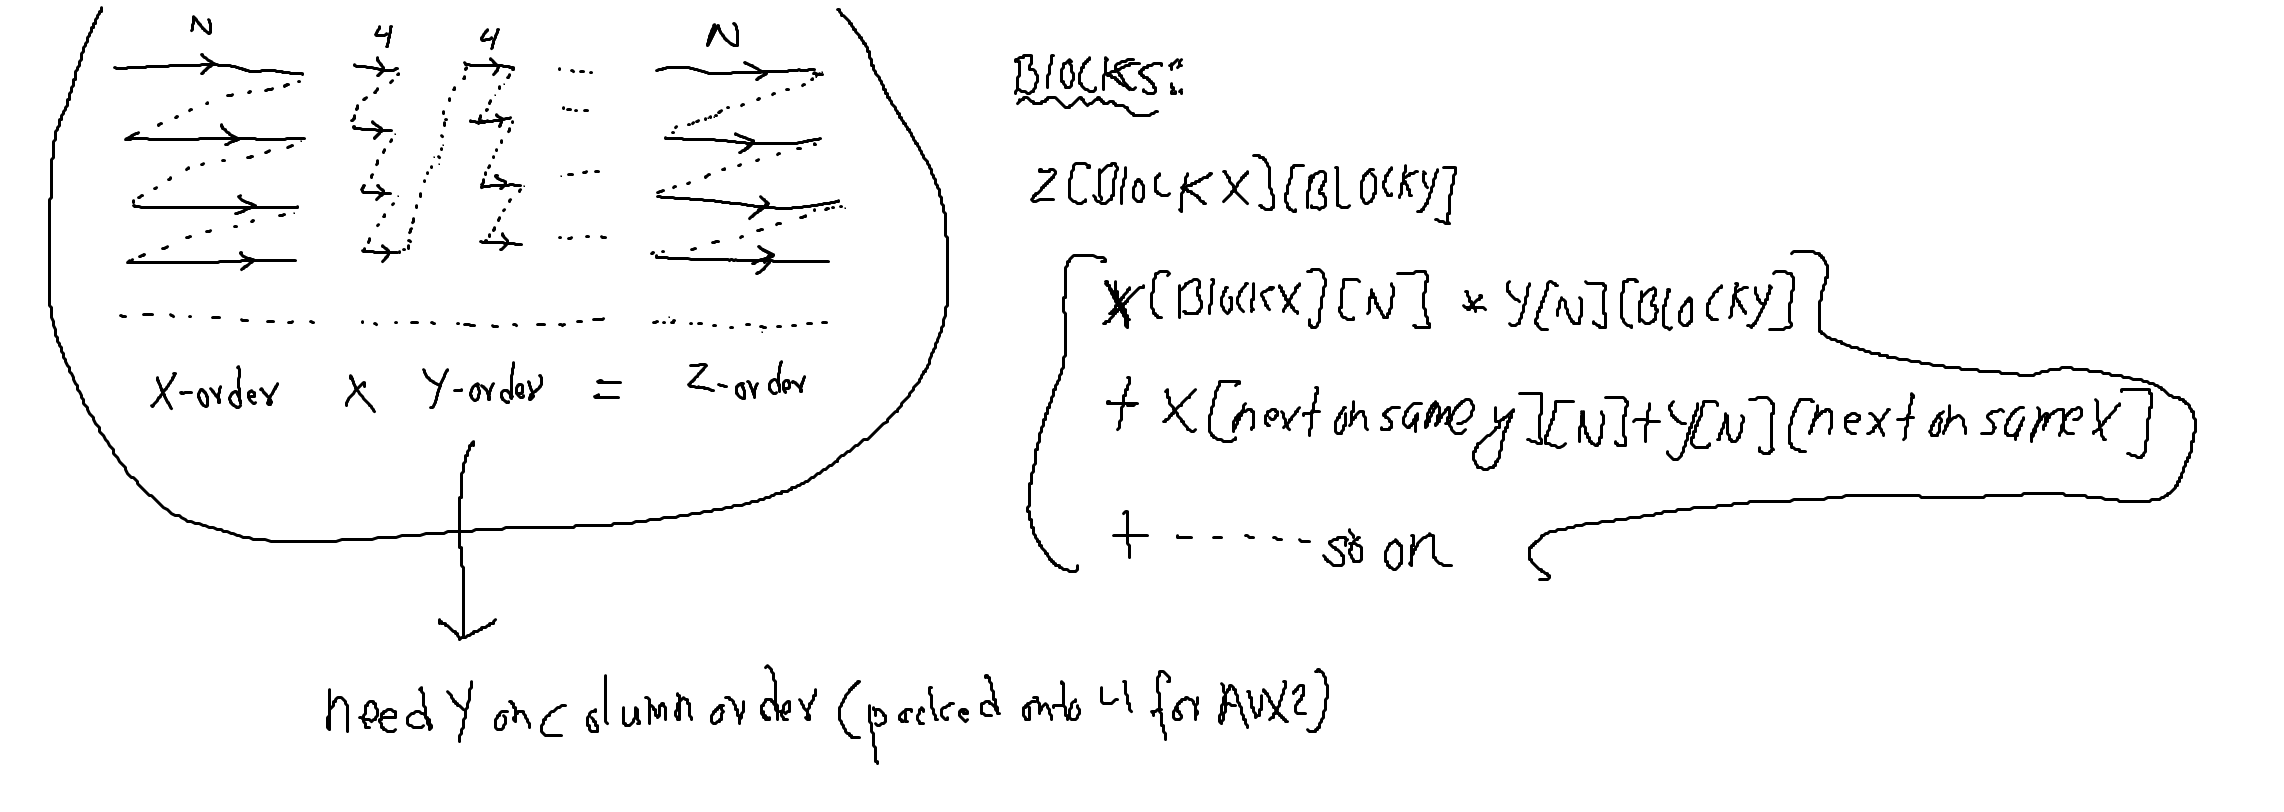 N 4 4 N
X-order x Y-order = Z-order
need Y on column order (packed onto 4 for AVX2)
Blocks:
Z[BlockX][BLOCKY]
X[BlockX][N] * Y[N][BLOCKY]
+ X[next on same y][N]+Y[N][next on same X]
+ ------so on